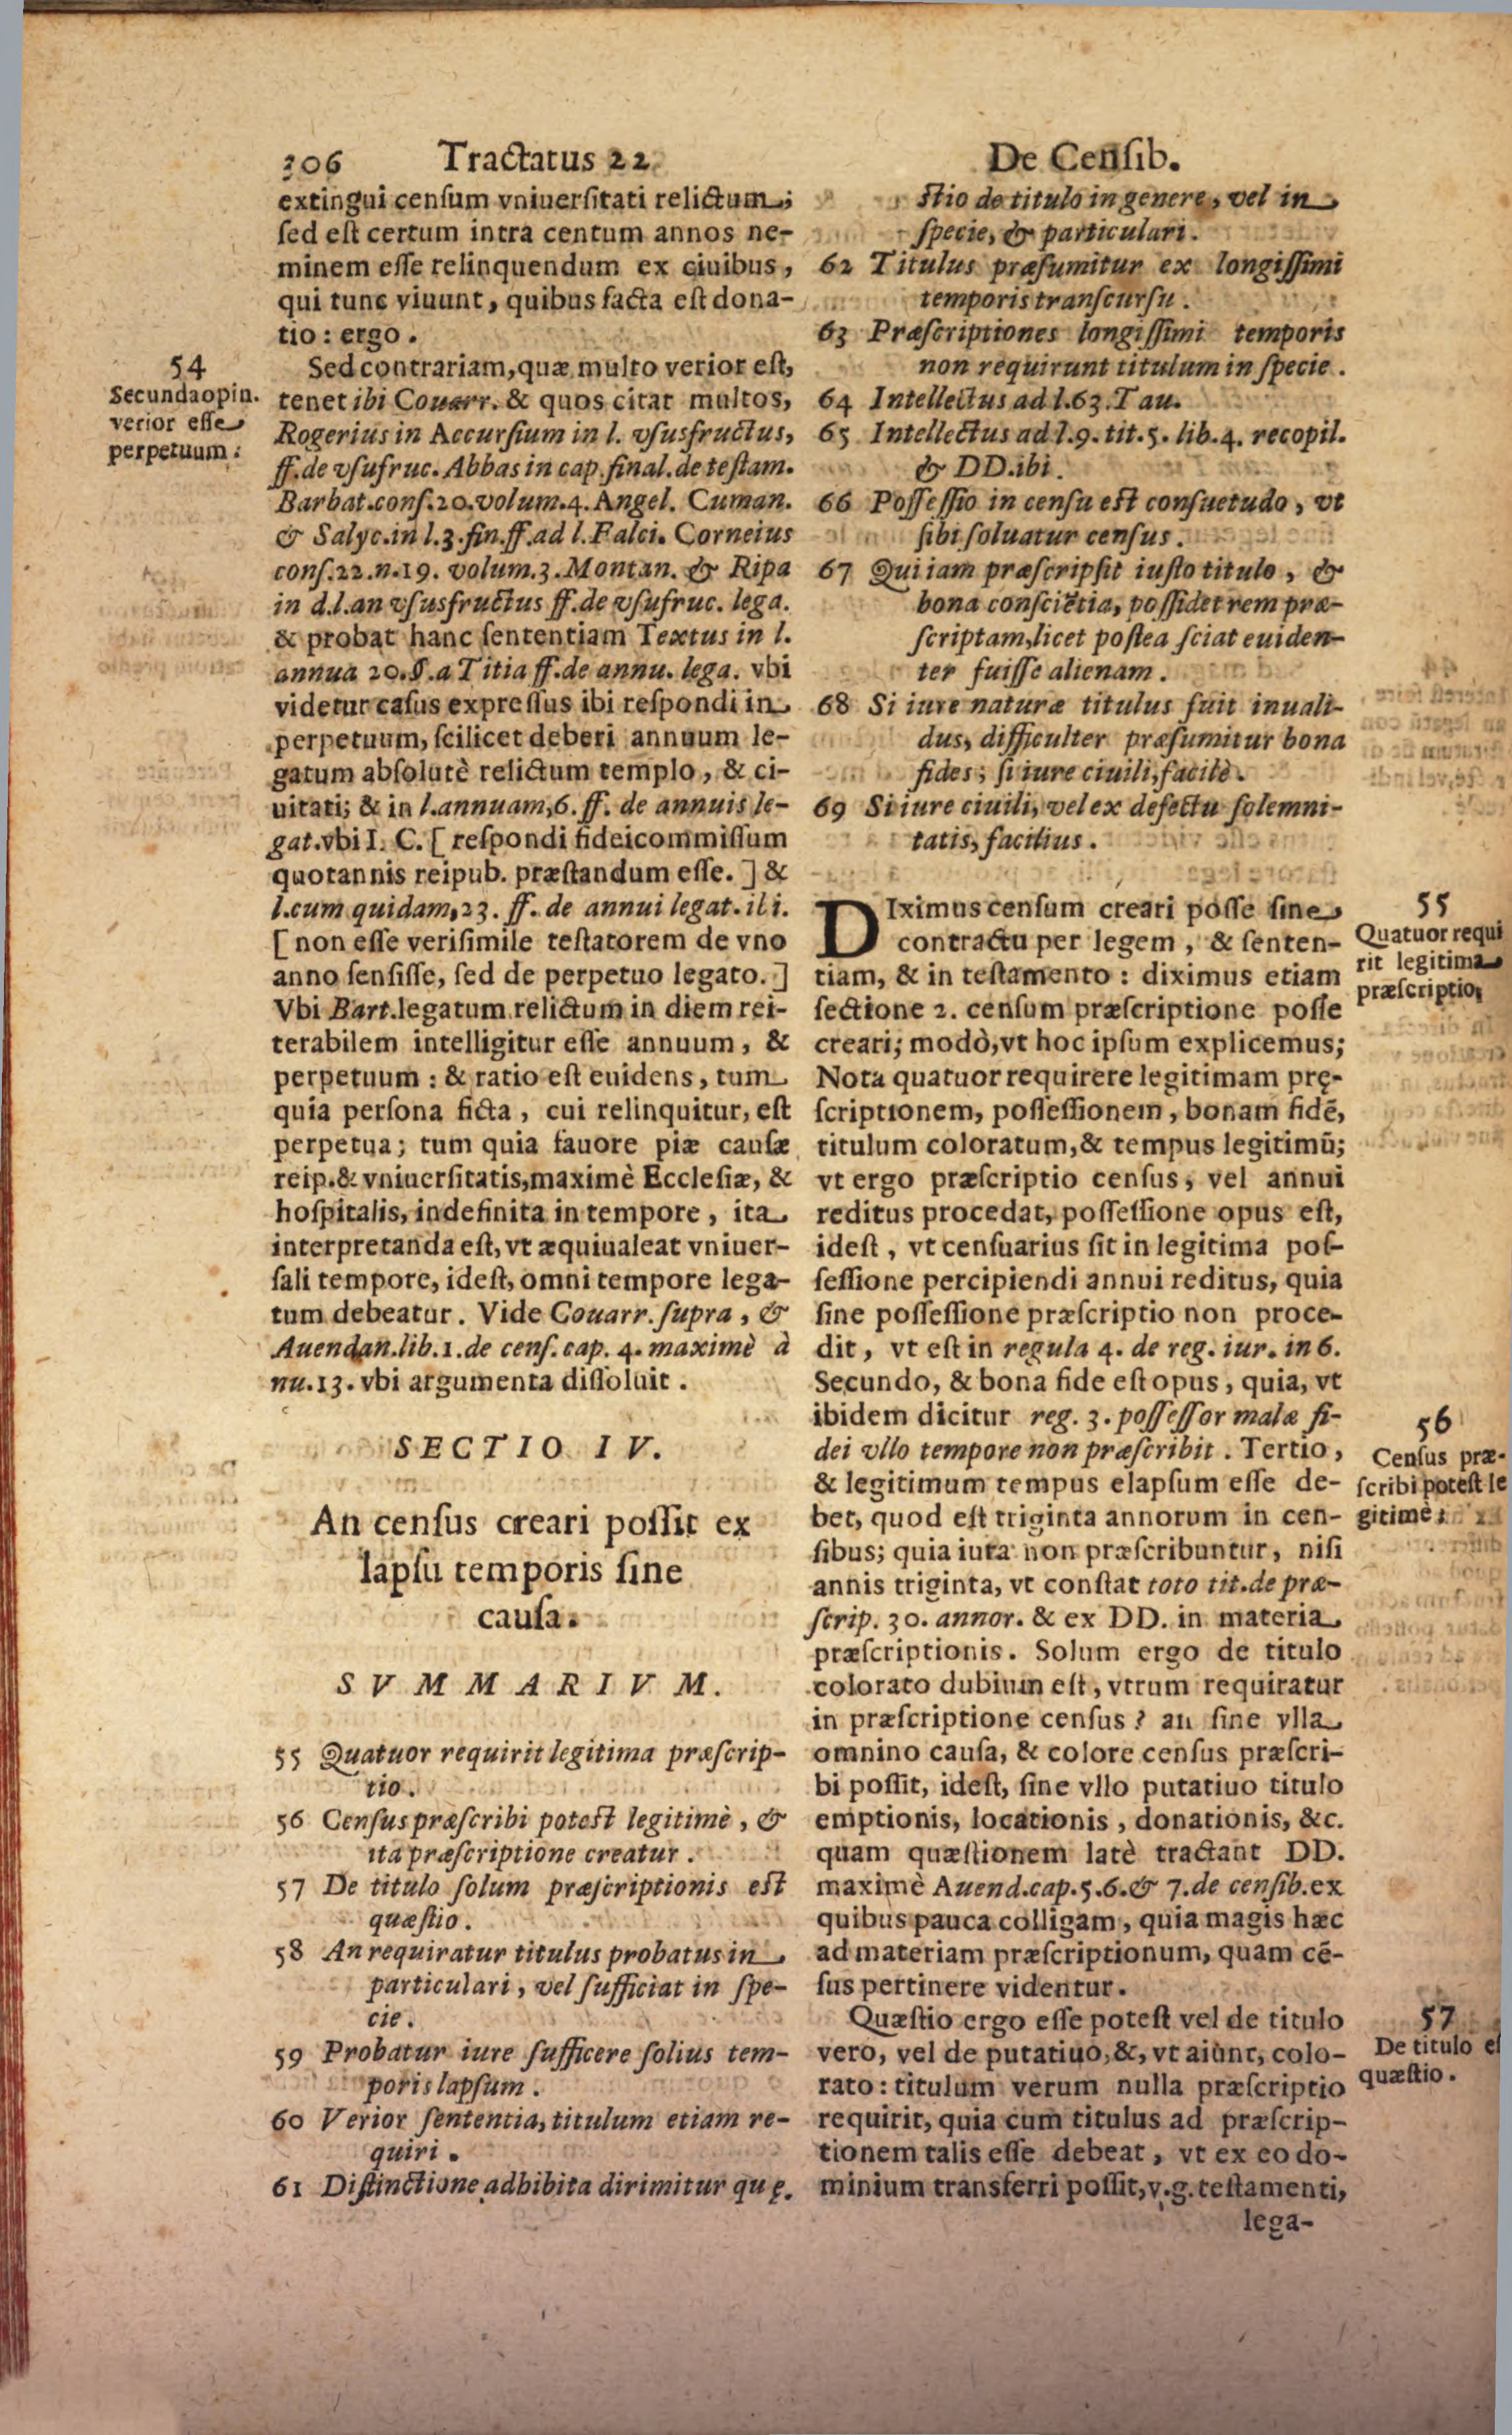 306 Tractatus 22
extingui censum vniuersitati relictum;
sed est certum intra centum annos ne-
minem esse relinquendum ex ciuibus,
qui tunc viuunt, quibus facta est dona-
tio: ergo.
54
Secunda opin.
verior esse
perpetuum.
Sed contrariam, quæ multo verior est,
tenet ibi Couarr. & quos citat multos,
Rogerius in Accursium in l. vsusfructus,
ff. de vsufruc. Abbas in cap. final. de testam.
Barbat. cons. 20. volum. 4. Angel. Cuman.
& Salyc. in l. 3. fin. ff. ad l. Falci. Corneius
cons. 22. n. 19. volum. 3. Montan. & Ripa
in d. l. an vsusfructus ff. de vsufruc. lega.
& probat hanc sententiam Textus in l.
annua 20. §. a Titia ff. de annu. lega. vbi
videtur casus expressus ibi respondi in
perpetuum, scilicet deberi annuum le-
gatum absolutè relictum templo, & ci-
uitati; & in l. annuam, 6. ff. de annuis le-
gat. vbi I. C. [ respondi fideicommissum
quotannis reipub. præstandum esse. ] &
l. cum quidam, 23. ff. de annui legat. ili.
[ non esse verisimile testatorem de vno
anno sensisse, sed de perpetuo legato. ]
Vbi Bart. legatum relictum in diem rei-
terabilem intelligitur esse annuum, &
perpetuum: & ratio est euidens, tum
quia persona ficta, cui relinquitur, est
perpetua; tum quia fauore piæ causæ
reip. & vniuersitatis, maximè Ecclesiæ, &
hospitalis, indefinita in tempore, ita
interpretanda est, vt æquiualeat vniuer-
sali tempore, idest, omni tempore lega-
tum debeatur. Vide Couarr. supra, &
Auendan. lib. 1. de cens. cap. 4. maximè à
nu. 13. vbi argumenta dissoluit.
SECTIO IV.
An census creari possit ex
lapsu temporis sine
causa.
SVMMARIVM.
55 Quatuor requirit legitima præscrip-
tio.
56 Census præscribi potest legitimè, &
ita præscriptione creatur.
57 De titulo solum præscriptionis est
quæstio.
58 An requiratur titulus probatus in
particulari, vel sufficiat in spe-
cie.
59 Probatur iure sufficere solius tem-
poris lapsum.
60 Verior sententia, titulum etiam re-
quiri.
61 Distinctione adhibita dirimitur quę.
De Censib.
stio de titulo in genere, vel in
specie, & particulari.
62 Titulus præsumitur ex longissimi
temporis transcursu.
63 Præscriptiones longissimi temporis
non requirunt titulum in specie.
64 Intellectus ad l. 63. Tau.
65 Intellectus ad l. 9. tit. 5. lib. 4. recopil.
& DD. ibi.
66 Possessio in censu est consuetudo, vt
sibi soluatur census.
67 Qui iam præscripsit iusto titulo, &
bona consciẽtia, possidet rem præ-
scriptam, licet postea sciat euiden-
ter fuisse alienam.
68 Si iure naturæ titulus fuit inuali-
dus, difficulter præsumitur bona
fides; si iure ciuili, facilè.
69 Si iure ciuili, vel ex defectu solemni-
tatis, facilius.
DIximus censum creari posse sine
contractu per legem, & senten-
tiam, & in testamento: diximus etiam
sectione 2. censum præscriptione posse
creari; modò, vt hoc ipsum explicemus;
Nota quatuor requirere legitimam prę-
scriptionem, possessionem, bonam fidẽ,
titulum coloratum, & tempus legitimũ;
vt ergo præscriptio census, vel annui
reditus procedat, possessione opus est,
idest, vt censuarius sit in legitima pos-
sessione percipiendi annui reditus, quia
sine possessione præscriptio non proce-
dit, vt est in regula 4. de reg. iur. in 6.
Secundo, & bona fide est opus, quia, vt
ibidem dicitur reg. 3. possessor malæ fi-
dei vllo tempore non præscribit. Tertio,
& legitimum tempus elapsum esse de-
bet, quod est triginta annorum in cen-
sibus; quia iura non præscribuntur, nisi
annis triginta, vt constat toto tit. de præ-
scrip. 30. annor. & ex DD. in materia
præscriptionis. Solum ergo de titulo
colorato dubium est, vtrum requiratur
in præscriptione census? an sine vlla
omnino causa, & colore census præscri-
bi possit, idest, sine vllo putatiuo titulo
emptionis, locationis, donationis, &c.
quam quæstionem latè tractant DD.
maximè Auend. cap. 5. 6. & 7. de censib. ex
quibus pauca colligam, quia magis hæc
ad materiam præscriptionum, quam cẽ-
sus pertinere videntur.
Quæstio ergo esse potest vel de titulo
vero, vel de putatiuo, &, vt aiunt, colo-
rato: titulum verum nulla præscriptio
requirit, quia cum titulus ad præscrip-
tionem talis esse debeat, vt ex eo do-
minium transferri possit, v. g. testamenti,
lega-
55
Quatuor requi
rit legitima
præscriptio,
56
Census præ-
scribi potest le
gitimè.
57
De titulo
quæstio.